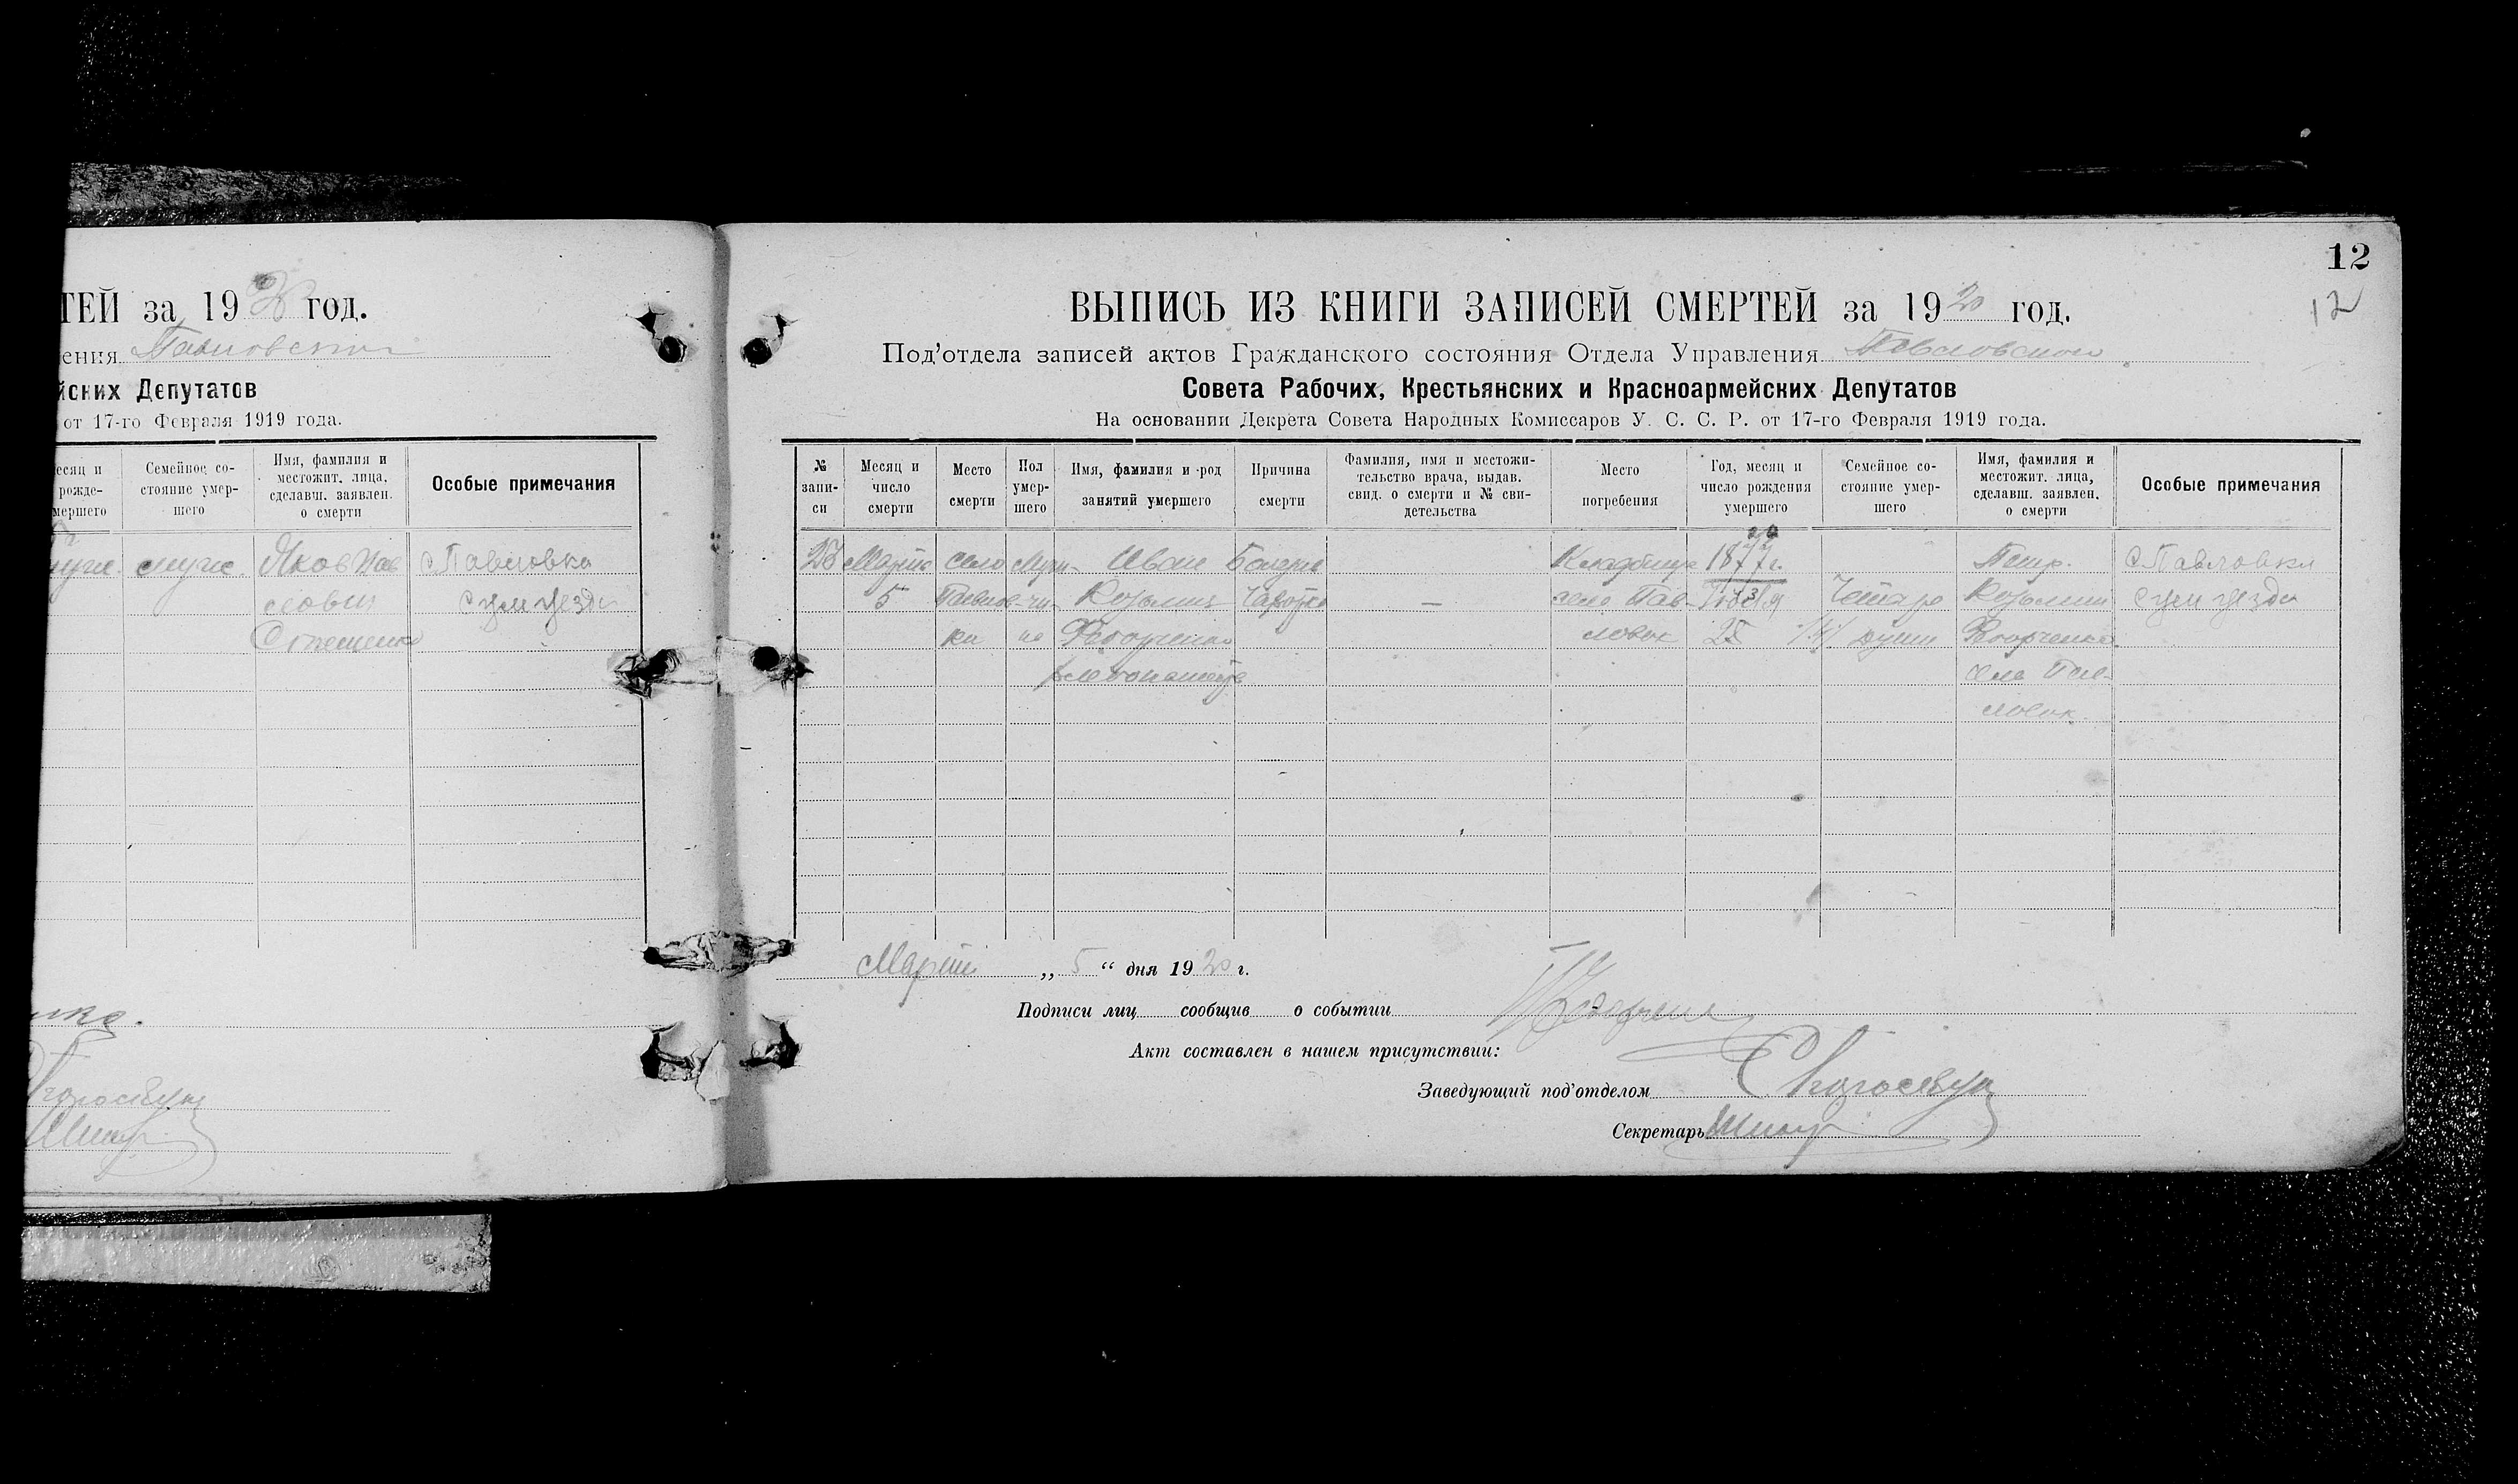 ТЕЙ за 1920 год.
ения Павловский
йских Депутатов
от 17-го Февраля 1919 года.
есяц и
рожде-
мершего
Семейное со-
стояние умер-
шего
Имя, фамилия и
местожит. лица,
сделавш. заявлен.
о смерти
Особые примечания
Яков Пав
ловин
с. Павловка
Сум уезда
12
12
ВЫПИСЬ ИЗ КНИГИ ЗАПИСЕЙ СМЕРТЕЙ за 1920 год.
Под'отдела записей актов Гражданского состояния Отдела Управления Павловского
Совета Рабочих, Крестьянских и Красноармейских Депутатов
На основании Декрета Совета Народных Комиссаров У. С. С. Р. от 17-го Февраля 1919 года.
№
запи-
си
Месяц и
число
смерти
Место
смерти
Пол
умер-
шего
Имя, фамилия и род
занятий умершего
Причина
смерти
Фамилия, имя и местожи-
тельство врача, выдав.
свид. о смерти и № сви-
детельства
Место
погребения
Год, месяц и
число рождения
умершего
Семейное со-
стояние умер-
шего
Имя, фамилия и
местожит. лица,
сделавш. заявлен.
о смерти
Особые примечания
Марта
5
село
Павлов-
ка
Мущ-
чи-
на
Иван
Козьмич
Федорченко
Болезнь
Чахотка
—
Кладбище
село Пав-
ловок
1877 г.
25
Четыре
/4/ души
Петр.
Козьмин
Федорченко
села Пав-
ловок
с. Павловка
Сум уезда
Март „ 5 “ дня 1920 г.
Подписи лиц сообщив о событии
Акт составлен в нашем присутствии:
Заведующий под'отделом
Секретарь